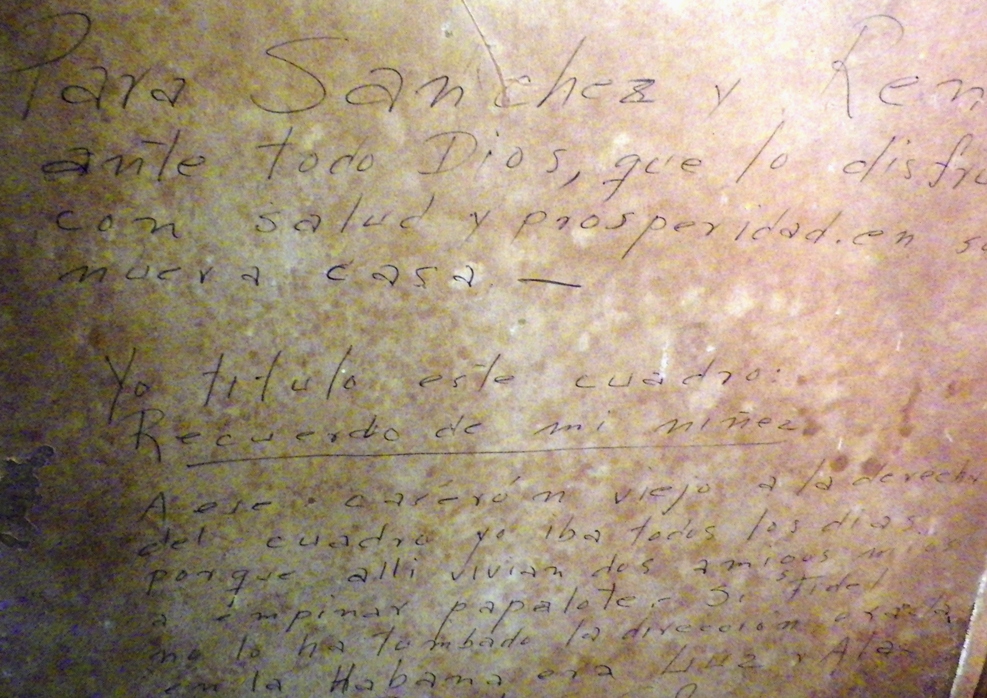 Para Sanchez y Ren
ante todo Dios, que lo disfru
con salud y prosperidad. en su
nueva casa. —
Yo titulo este cuadro:
Recuerdo de mi niñez
A ese caserón viejo a la derecha
del cuadro yo iba todos los dias
porque alli vivian dos amigos mios
a empinar papalote. Si Fidel
no lo ha tumbado la dirección era
en la Habana era Luz